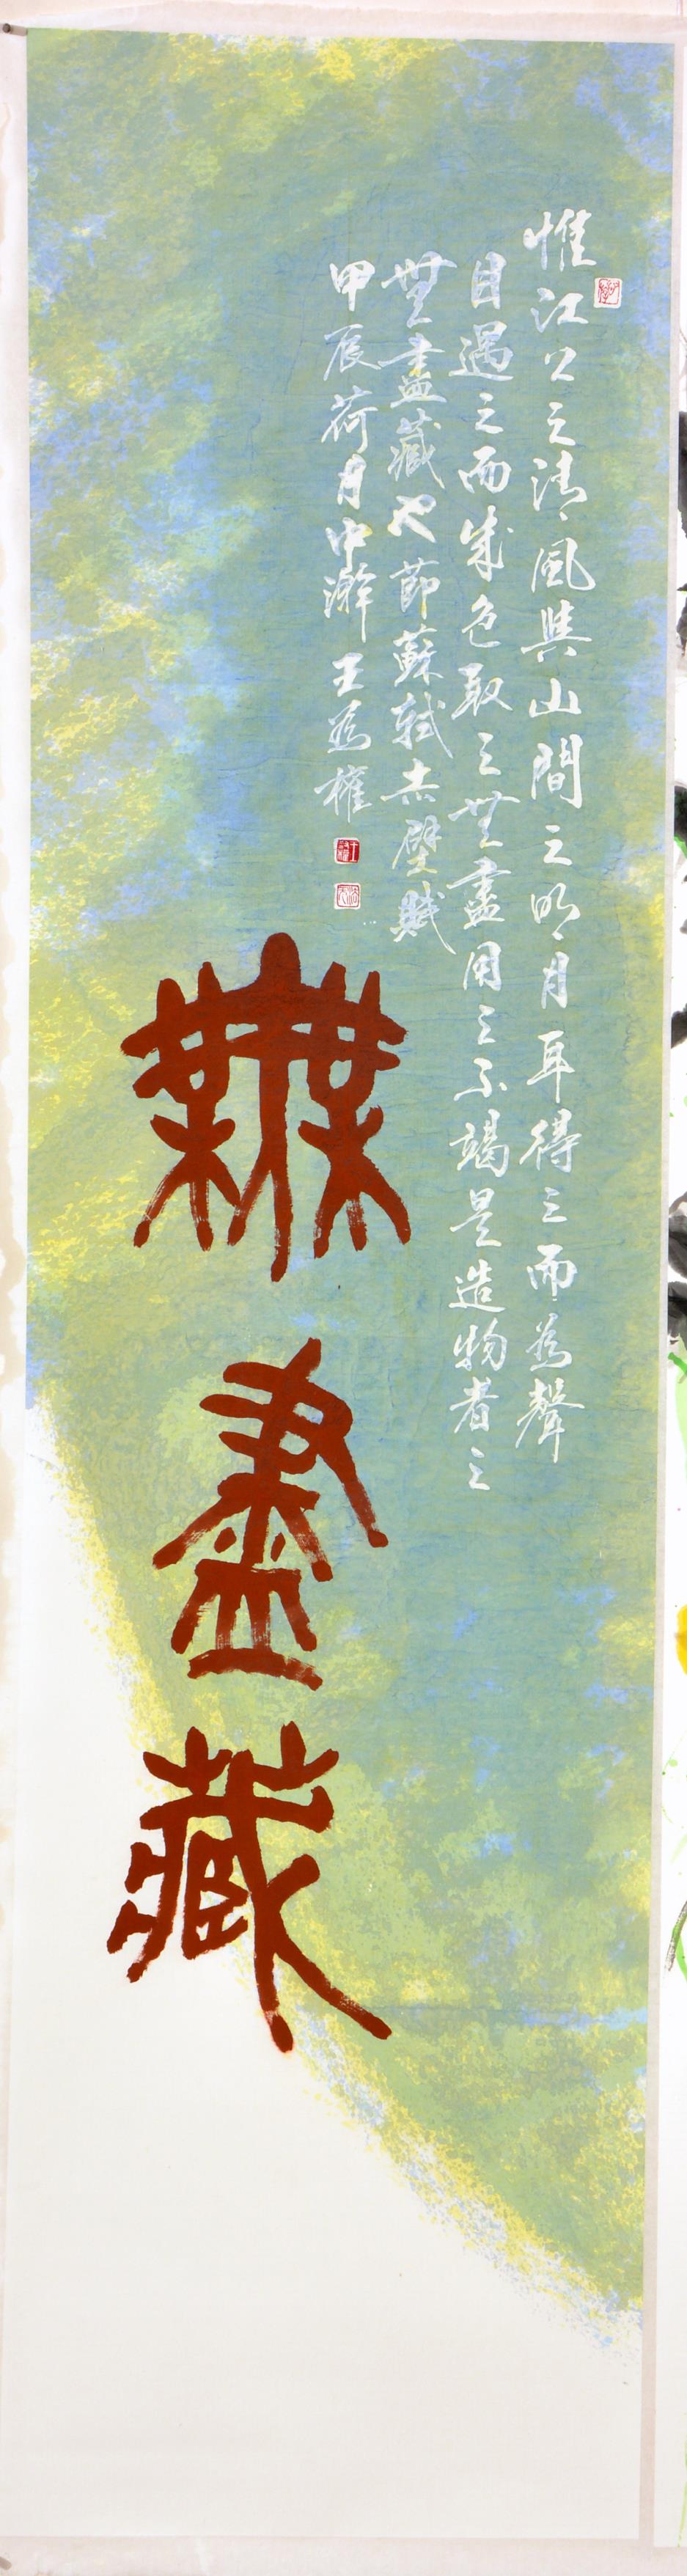 惟江上之清風與山間之明月耳得之而為聲
目遇之而成色取之無盡用之不竭是造物者之
無盡藏也節蘇軾赤壁賦
甲辰荷月中澣王為權
無盡藏